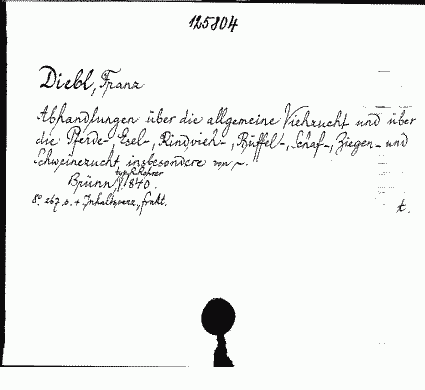 125804
Diebl, Franz
Abhandlungen über die allgemeine Viehzucht und über
die Pferde-, Esel-, Rindvieh-, Büffel-, Schaf-, Ziegen- und
Schweinezucht, insbesondere von ~.
typ. R. Rohrer
Brünn, 1840.
8° 267 s. + Inhaltsverz., frakt.
t.